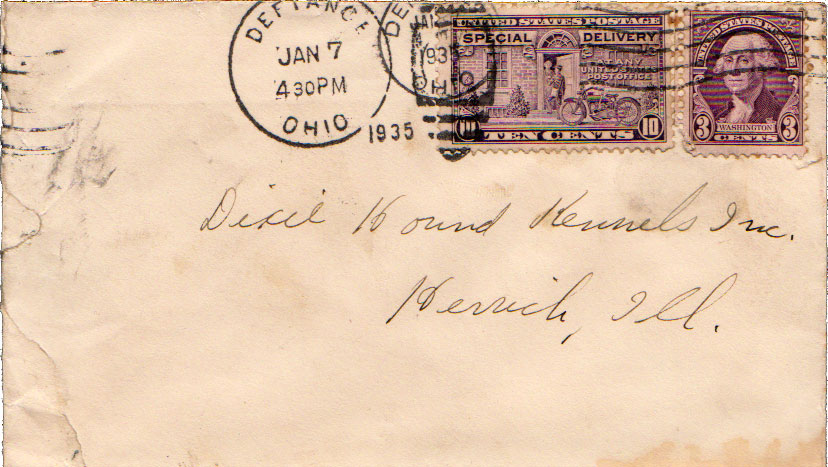 DEFIANCE
JAN 7
430PM
OHIO
1935
DE
JAN
1935
OHIO
UNITED STATES POSTAGE
SPECIAL DELIVERY
AT ANY
UNITED STATES
POST OFFICE
10 TEN CENTS 10
UNITED STATES POSTAGE
WASHINGTON
3 CENTS 3
Dixie Hound Kennels Inc.
Herrick, Ill.